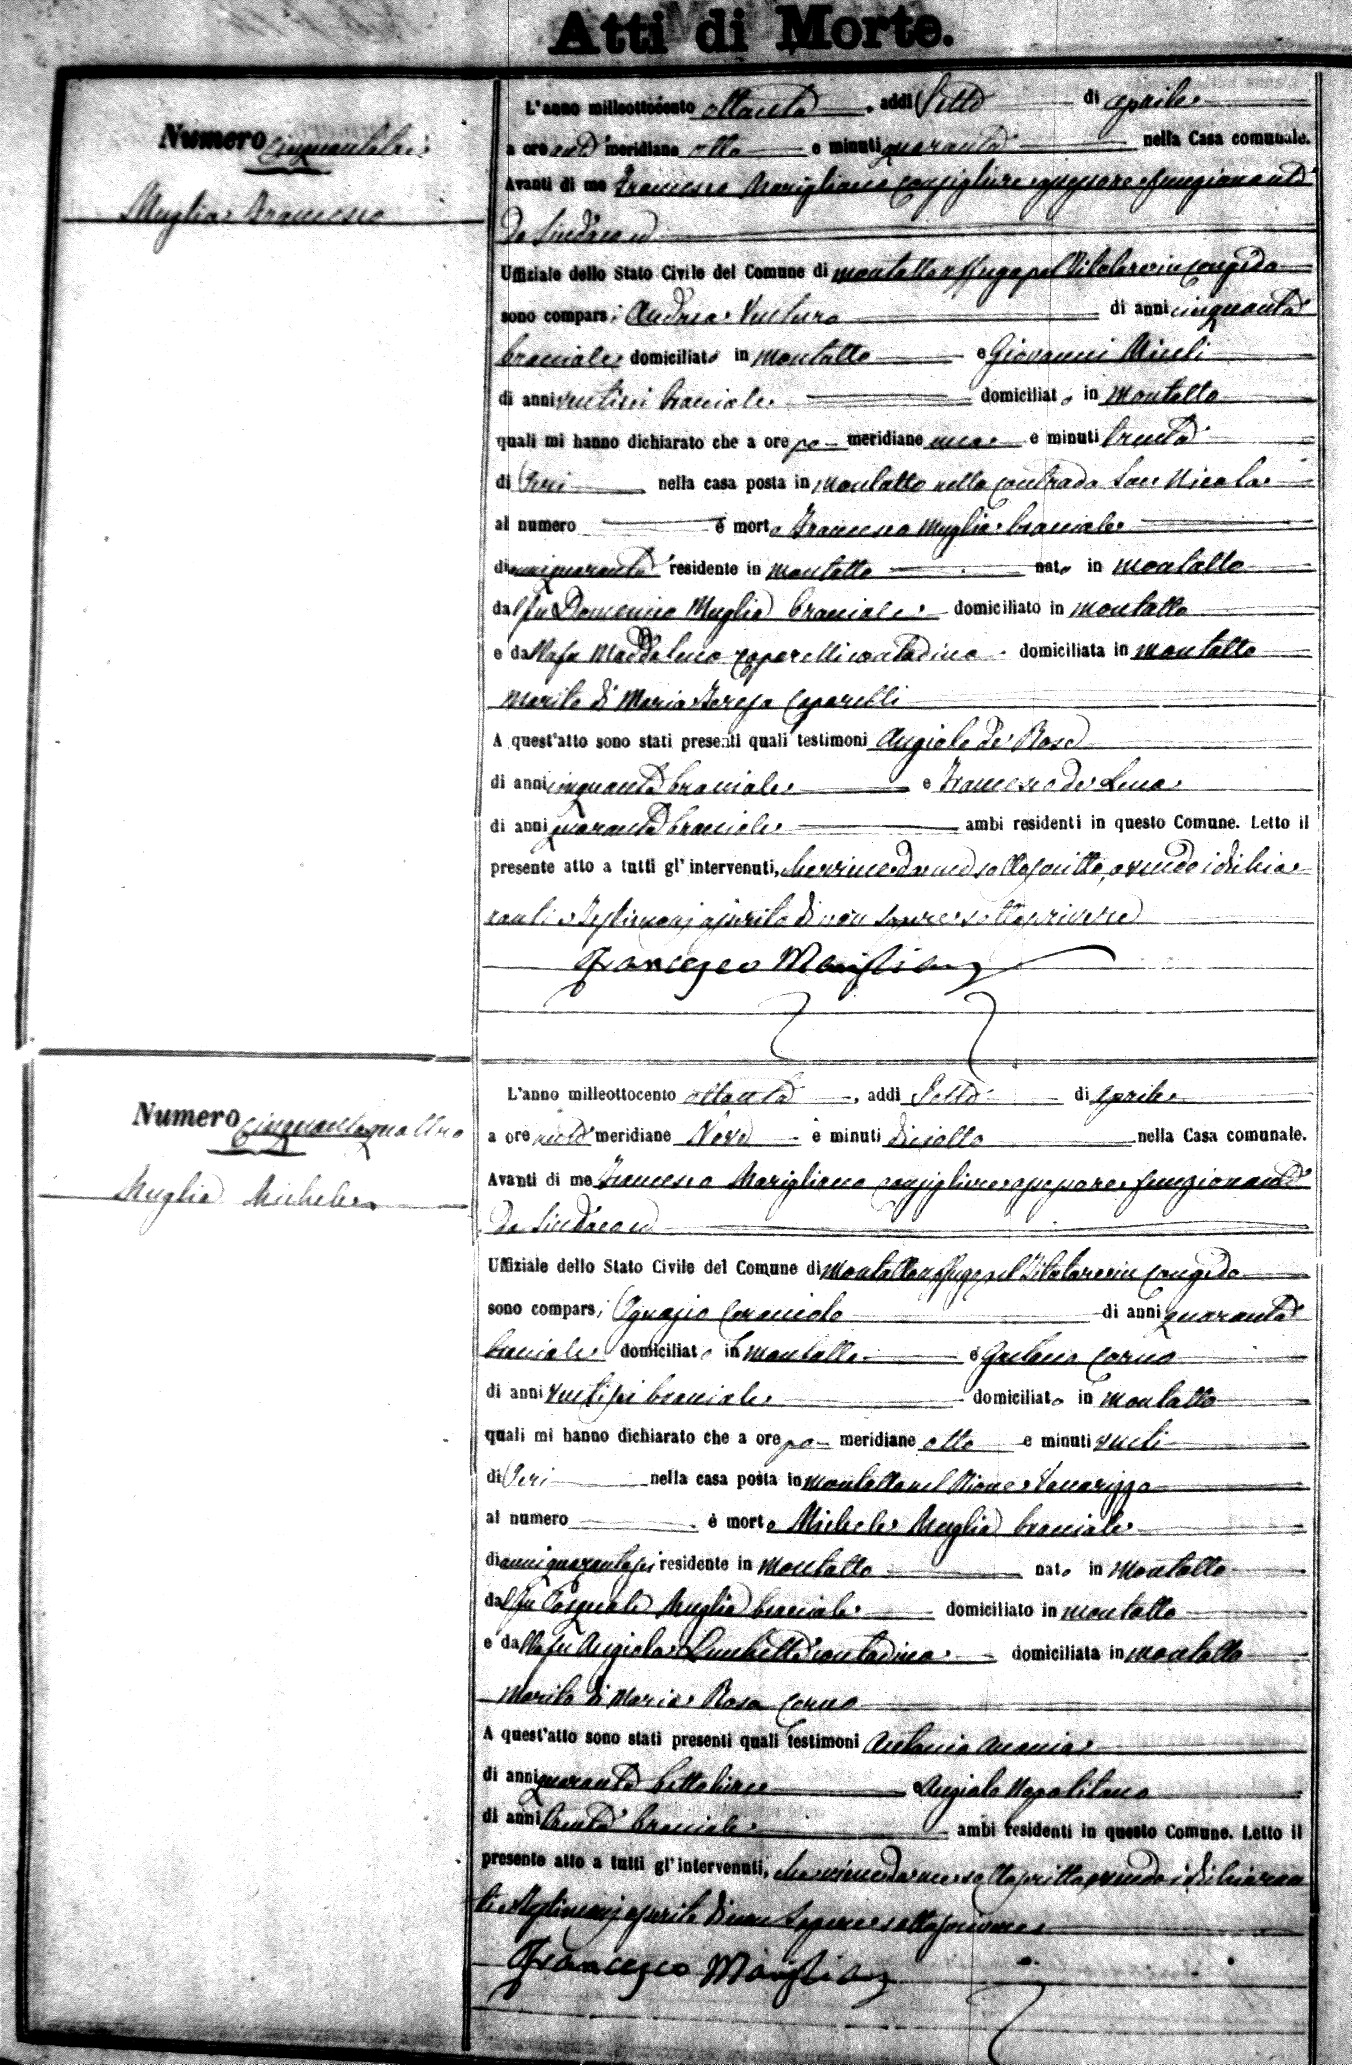 Atti di Morte.
Numero cinquantatrè
Muglia Francesco
L'anno milleottocento ottanta, addì sette di aprile
a ore anti meridiane otto e minuti quaranta nella Casa comunale.
Avanti di me Francesco Marigliano consigliere assessore funzionante
da Sindaco ed
Uffiziale dello Stato Civile del Comune di Montalto Uffugo pel titolare in congedo
sono comparsi Andrea Ventura di anni cinquanta
bracciale domiciliato in Montalto e Giovanni Miceli
di anni bracciale domiciliato in Montalto
quali mi hanno dichiarato che a ore po meridiane una e minuti trenta
di Ieri nella casa posta in Montalto nella contrada San Nicola
al numero è morto Francesco Muglia bracciale
di anni quaranta residente in Montalto nato in Montalto
dal fu Domenico Muglia bracciale domiciliato in Montalto
e dalla fu Maddalena Caparelli contadina domiciliata in Montalto
marito di Maria Teresa Caparelli
A quest'atto sono stati presenti quali testimoni Angiolo de Rose
di anni cinquanta bracciale e Francesco de Luca
di anni quaranta bracciale ambi residenti in questo Comune. Letto il
presente atto a tutti gl'intervenuti, che viene da me sottoscritto avendo i dichia
ranti e testimonj asserito di non sapere sottoscrivere
Francesco Marigliano
Numero cinquantaquattro
Muglia Michele
L'anno milleottocento ottanta, addì sette di aprile
a ore anti meridiane Nove e minuti diciotto nella Casa comunale.
Avanti di me Francesco Marigliano consigliere assessore funzionante
da Sindaco ed
Uffiziale dello Stato Civile del Comune di Montalto Uffugo pel titolare in congedo
sono comparsi Ignazio Caracciolo di anni quaranta
bracciale domiciliato in Montalto e Gaetano Corno
di anni ventisei bracciale domiciliato in Montalto
quali mi hanno dichiarato che a ore po meridiane otto e minuti venti
di Ieri nella casa posta in Montalto nel Rione Vaccarizzo
al numero è morto Michele Muglia bracciale
di anni quarantasei residente in Montalto nato in Montalto
dal fu Pasquale Muglia bracciale domiciliato in Montalto
e dalla fu Angiola Lucchetta contadina domiciliata in Montalto
marito di Maria Rosa Corno
A quest'atto sono stati presenti quali testimoni Antonio Anania
di anni quaranta bettoliere e Angiolo Napolitano
di anni trenta bracciale ambi residenti in questo Comune. Letto il
presente atto a tutti gl'intervenuti, che viene da me sottoscritto avendo i dichiaran
ti e testimonj asserito di non sapere sottoscrivere
Francesco Marigliano